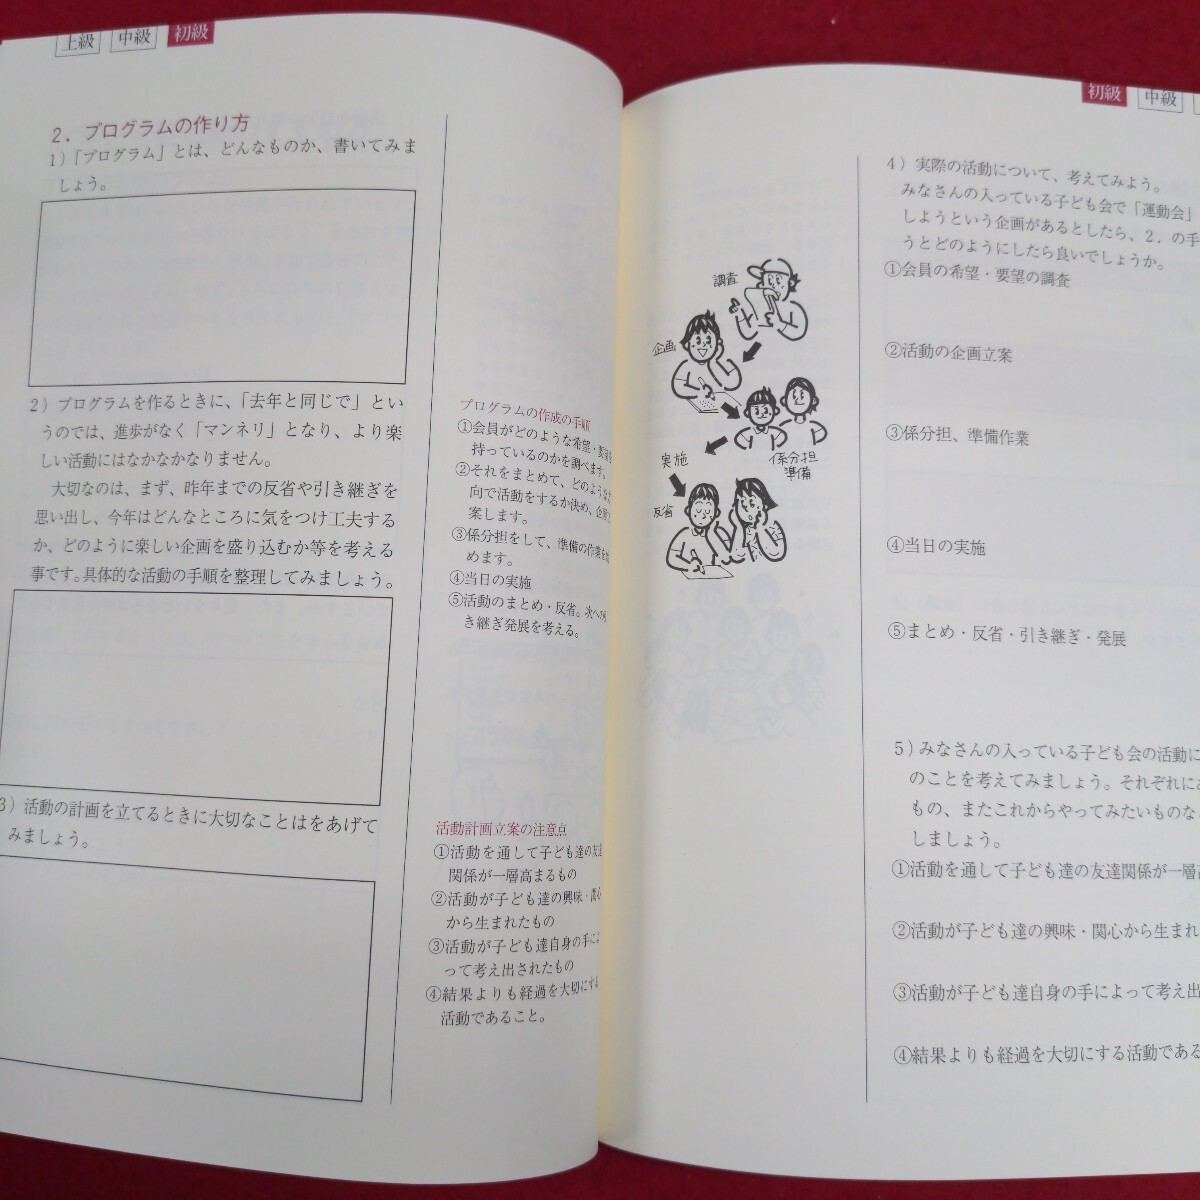 上級 中級 初級
2．プログラムの作り方
1）「プログラム」とは、どんなものか、書いてみま
しょう。
2）プログラムを作るときに、「去年と同じで」とい
うのでは、進歩がなく「マンネリ」となり、より楽
しい活動にはなかなかなりません。
大切なのは、まず、昨年までの反省や引き継ぎを
思い出し、今年はどんなところに気をつけ工夫する
か、どのように楽しい企画を盛り込むか等を考える
事です。具体的な活動の手順を整理してみましょう。
3）活動の計画を立てるときに大切なことはをあげて
みましょう。
プログラムの作成の手順
①会員がどのような希望・要望を
持っているのかを調べます。
②それをまとめて、どのような方
向で活動をするか決め、企画立
案します。
③係分担をして、準備の作業を始
めます。
④当日の実施
⑤活動のまとめ・反省。次への引
き継ぎ発展を考える。
活動計画立案の注意点
①活動を通して子ども達の友達
関係が一層高まるもの
②活動が子ども達の興味・関心
から生まれたもの
③活動が子ども達自身の手によ
って考え出されたもの
④結果よりも経過を大切にする
活動であること。
初級 中級
調査
企画
係分担
準備
実施
反省
4）実際の活動について、考えてみよう。
みなさんの入っている子ども会で「運動会」
しようという企画があるとしたら、2．の手
うとどのようにしたら良いでしょうか。
①会員の希望・要望の調査
②活動の企画立案
③係分担、準備作業
④当日の実施
⑤まとめ・反省・引き継ぎ・発展
5）みなさんの入っている子ども会の活動に
のことを考えてみましょう。それぞれに
もの、またこれからやってみたいものな
しましょう。
①活動を通して子ども達の友達関係が一層
②活動が子ども達の興味・関心から生まれ
③活動が子ども達自身の手によって考え出
④結果よりも経過を大切にする活動である